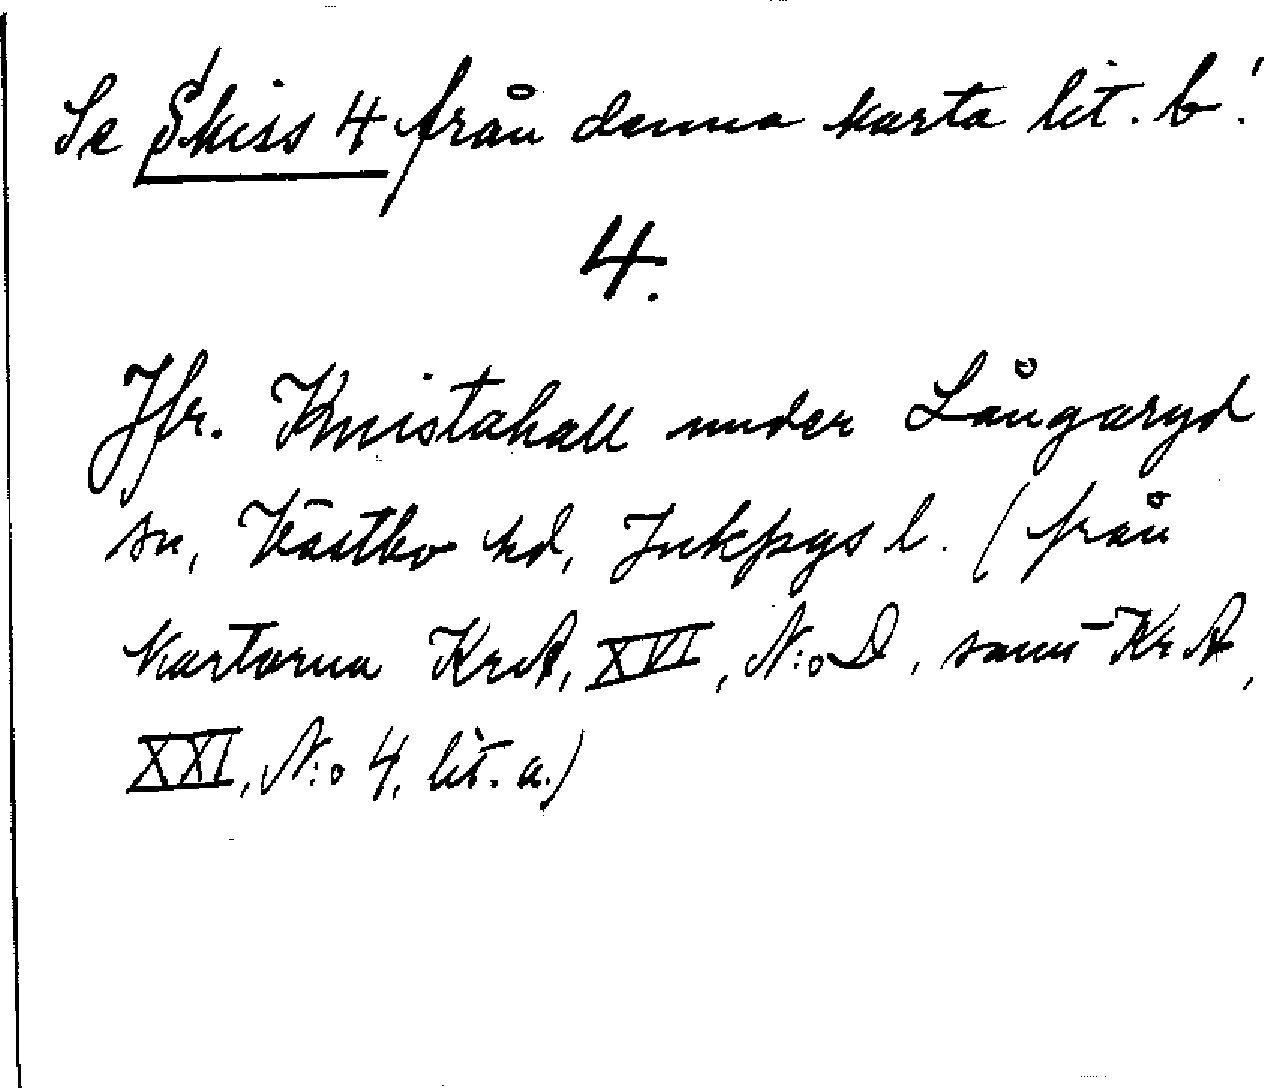 Se Skiss 4 från denna karta lit. b!
4.
Jfr. Knistahall under Långaryd
sn, Västbo hd, Jnkpgs l. (från
kartorna KrA, XVI, N:o D, samt KrA,
XXI, N:o 4, lit. a.)